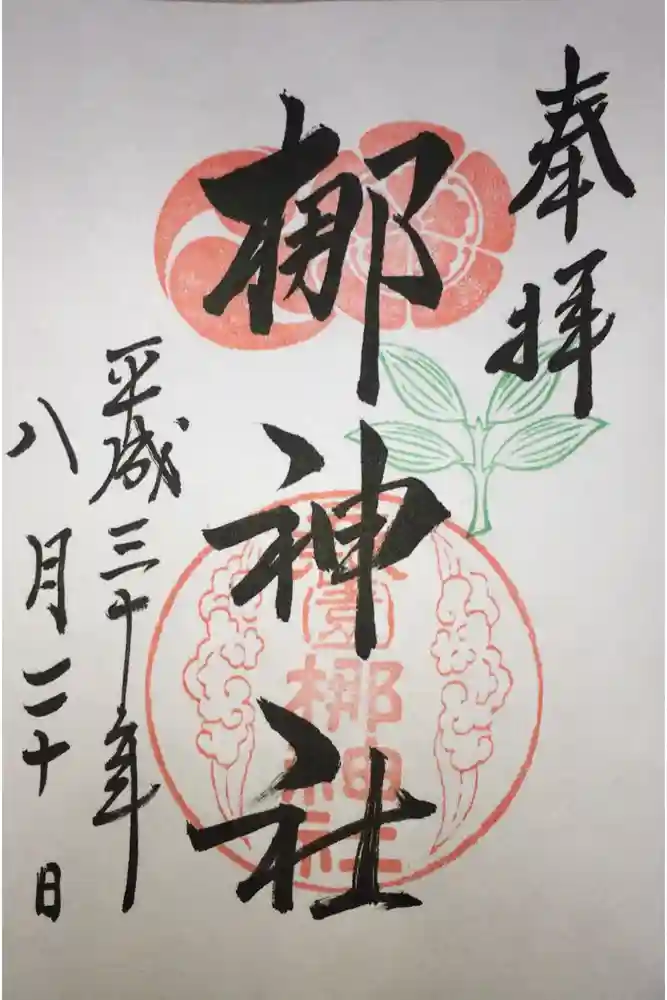 奉拝
梛神社
元祇園梛神社
平成三十年
八月二十日